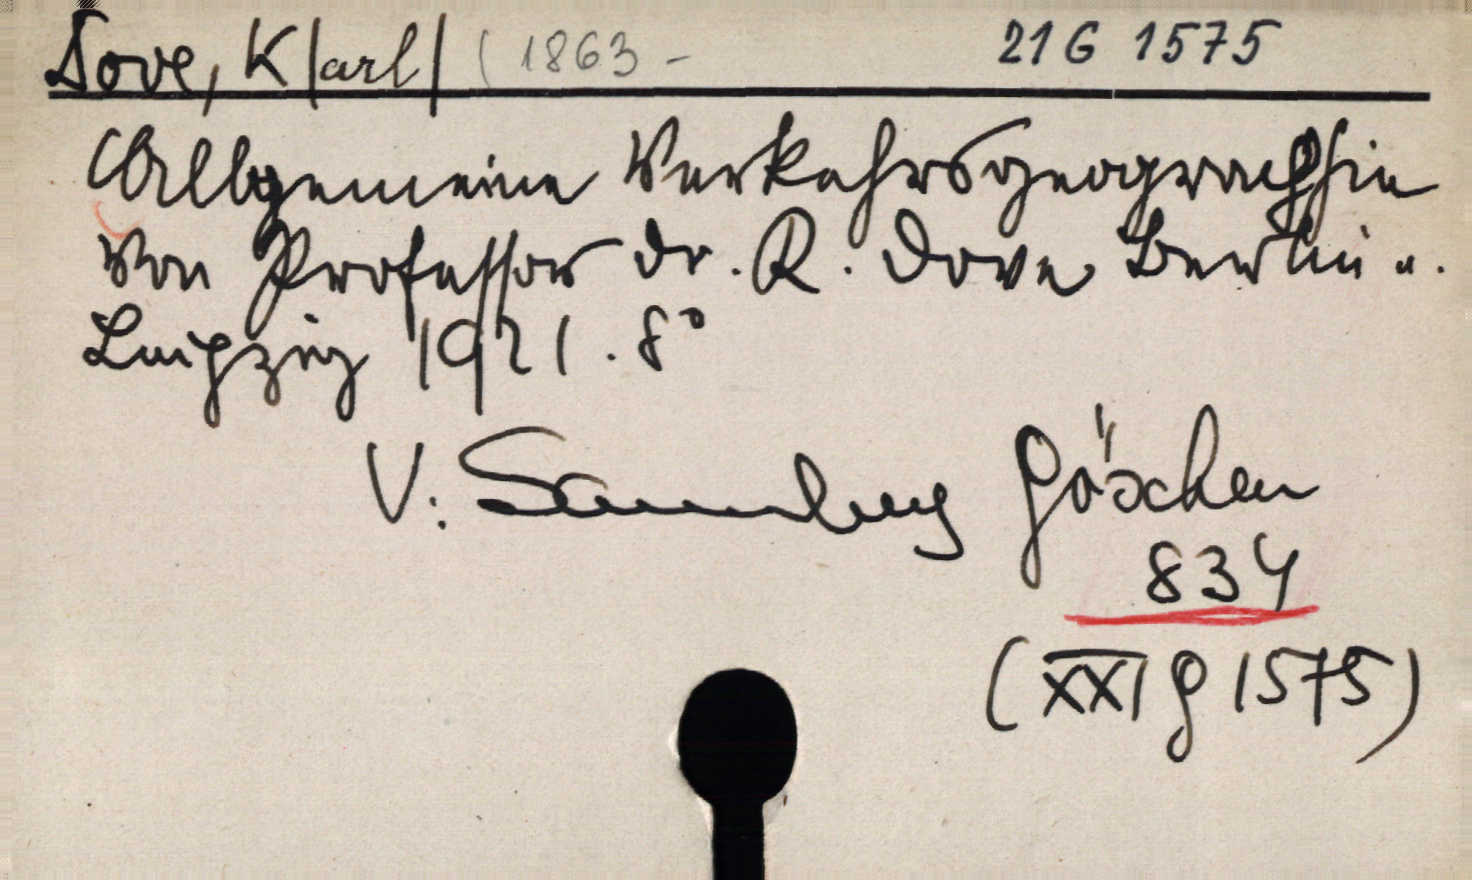 Dove, K|arl| (1863 - 21 G 1575
Allgemeine Verkehrsgeographie
Von Professor Dr. K. Dove Berlin u.
Leipzig 1921. 8°
V: Sammlung Göschen
834
(XXI g 1575)